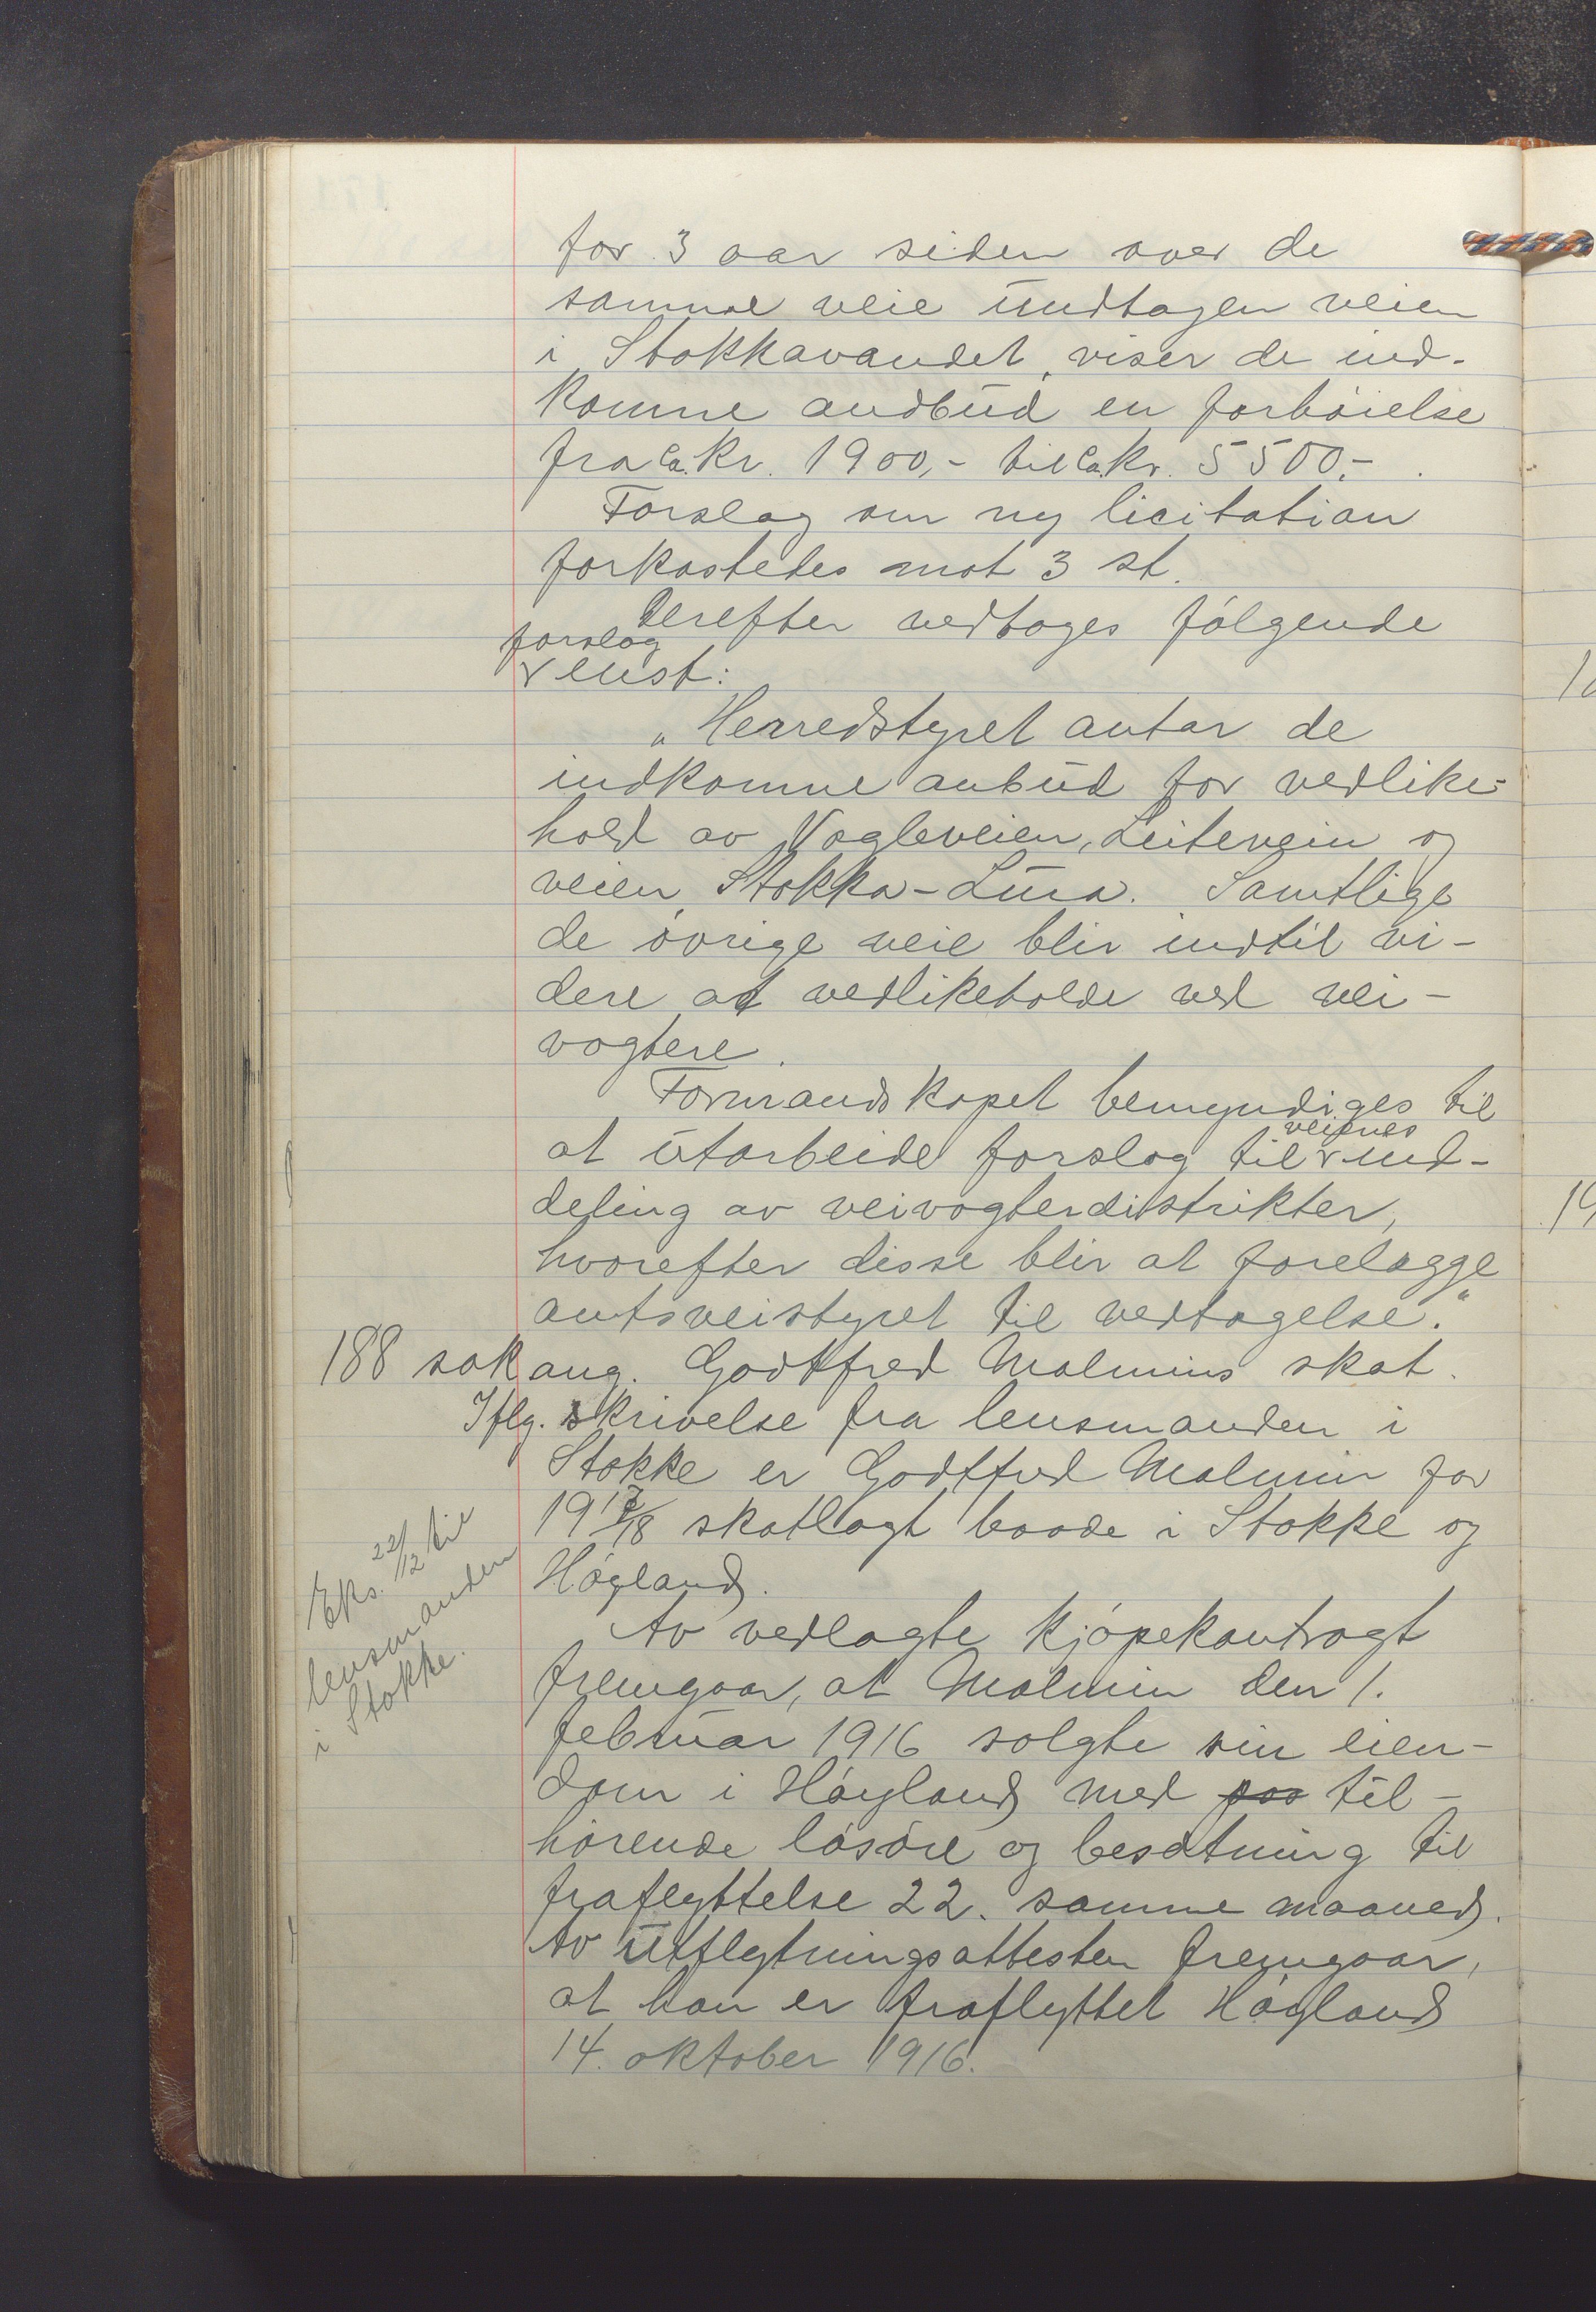 for 3 aar siden over de
samme veie undtagen veien
i Stokkavandet, viser de ind-
komne andbud en forhöielse
fra ca. kr. 1900,- til ca. kr. 5500,-.
Forslag om ny licitation
forkastedes mot 3 st.
Derefter vedtoges fölgende
forslag
v enst:
„Herredstyret antar de
indkomne anbud for vedlike-
hold av Vagleveien, Leitevein og
veien Stokka-Lura. Samtlige
de övrige veie blir indtil vi-
dere at vedlikeholde ved vei-
vogtere.
Formandskapet bemyndiges til
veienes
at utarbeide forslag til v ind-
deling av veivogterdistrikter,
hvorefter disse blir at forelægge
amtsveistyret til vedtagelse."
188 sak ang. Godtfred Malmins skat.
Iflg. skrivelse fra lensmanden i
Stokke er Godtfred Malmin for
1917/18 skatlagt baade i Stokke og
Höyland.
Eks. 22/12 til
lensmanden
i Stokke.
Av vedlagte kjöpekontragt
fremgaar, at Malmin den 1.
februar 1916 solgte sin eien-
dom i Höyland med paa til-
hörende lösöre og besætning til
fraflyttelse 22. samme maaned.
Av utflytningsattesten fremgaar,
at han er fraflyttet Höyland
14. oktober 1916.